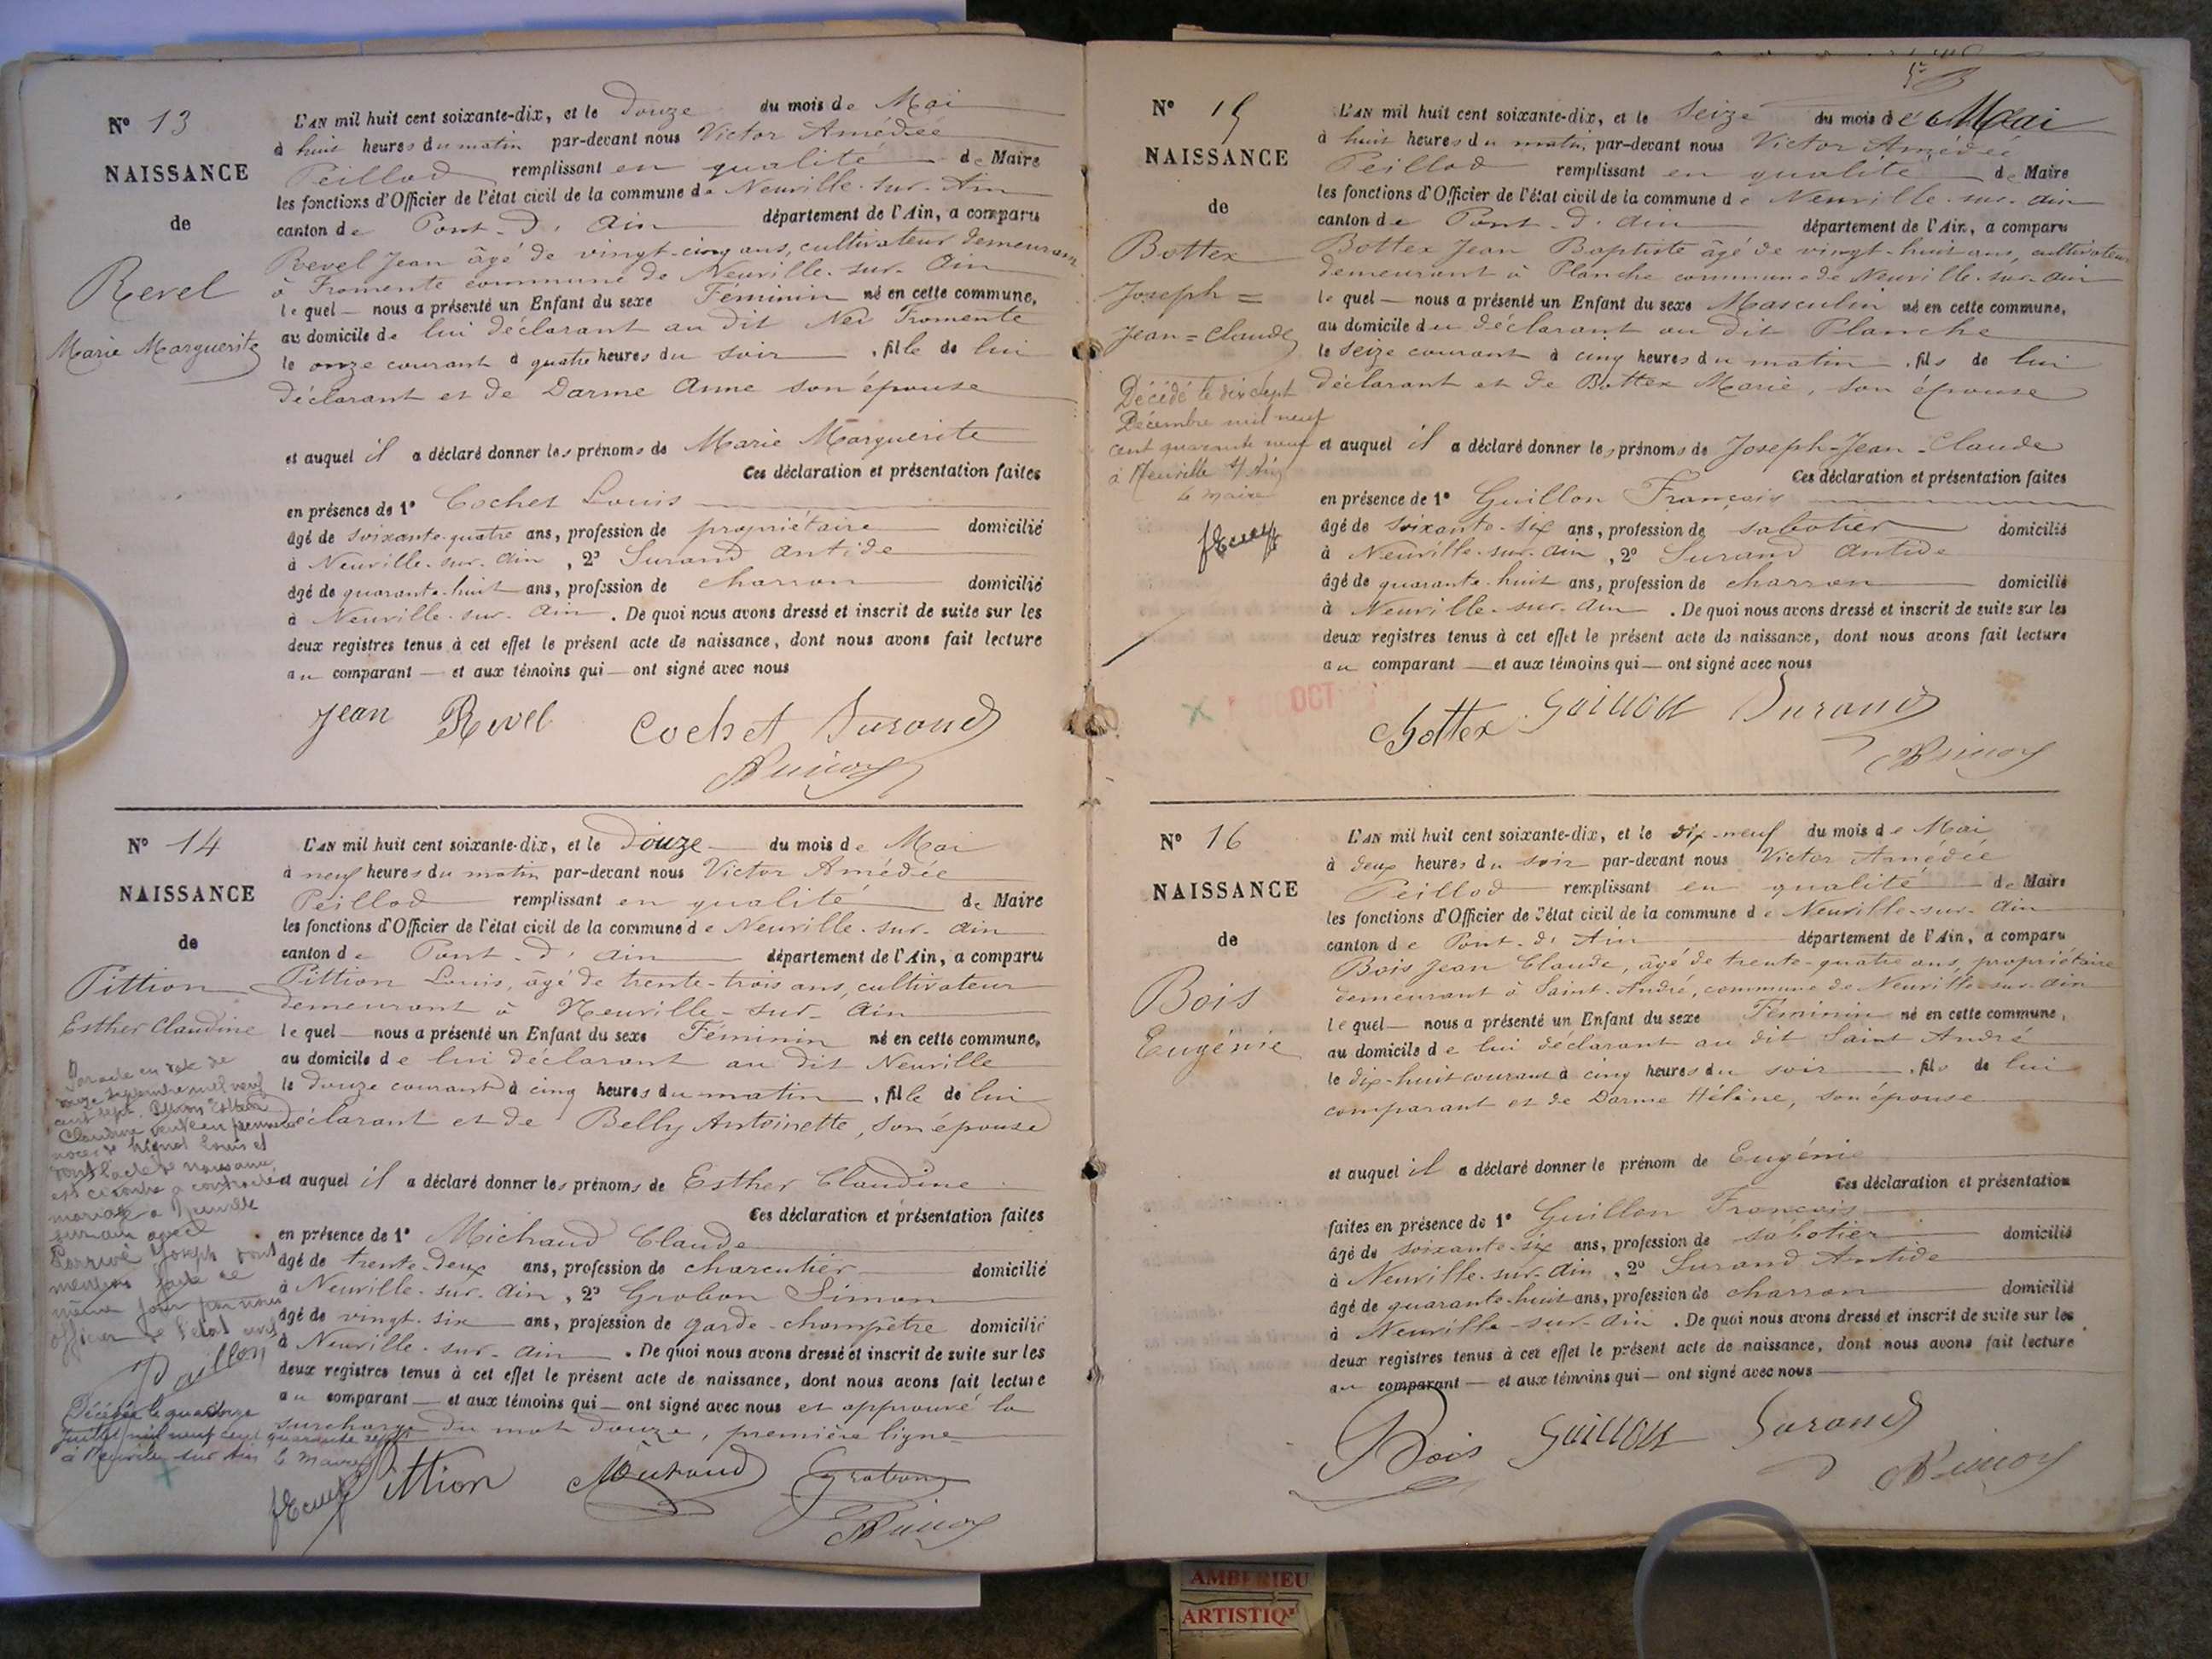 N° 13
NAISSANCE
de
Revel
Marie Marguerite
L'AN mil huit cent soixante-dix, et le Douze du mois de Mai
à huit heures du matin par-devant nous Victor Amédée
Peillod remplissant en qualité de Maire
les fonctions d'Officier de l'état civil de la commune de Neuville-sur-Ain
canton de Pont-d'Ain département de l'Ain, a comparu
Revel Jean âgé de vingt-cinq ans, cultivateur demeurant
à Fromente commune de Neuville-sur-Ain
lequel nous a présenté un Enfant du sexe Féminin né en cette commune,
au domicile de lui déclarant au dit Fromente
le onze courant à quatre heures du soir, fille de lui
déclarant et de Darme Anne son épouse
et auquel il a déclaré donner les prénoms de Marie Marguerite
Ces déclaration et présentation faites
en présence de 1° Cochet Louis
âgé de soixante-quatre ans, profession de propriétaire domicilié
à Neuville-sur-Ain, 2° Durand Antide
âgé de quarante-huit ans, profession de charron domicilié
à Neuville-sur-Ain. De quoi nous avons dressé et inscrit de suite sur les
deux registres tenus à cet effet le présent acte de naissance, dont nous avons fait lecture
au comparant et aux témoins qui ont signé avec nous
Jean Revel Cochet Durand
N° 14
NAISSANCE
de
Pittion
Esther Claudine
L'AN mil huit cent soixante-dix, et le Douze du mois de Mai
à neuf heures du matin par-devant nous Victor Amédée
Peillod remplissant en qualité de Maire
les fonctions d'Officier de l'état civil de la commune de Neuville-sur-Ain
canton de Pont-d'Ain département de l'Ain, a comparu
Pittion Louis, âgé de trente-trois ans, cultivateur
demeurant à Neuville-sur-Ain
lequel nous a présenté un Enfant du sexe Féminin né en cette commune,
au domicile de lui déclarant au dit Neuville
le douze courant à cinq heures du matin, fille de lui
déclarant et de Belly Antoinette, son épouse
et auquel il a déclaré donner les prénoms de Esther Claudine
Ces déclaration et présentation faites
en présence de 1° Michaud Claude
âgé de trente-deux ans, profession de charcutier domicilié
à Neuville-sur-Ain, 2° Grobon Simon
âgé de vingt-six ans, profession de garde-champêtre domicilié
à Neuville-sur-Ain. De quoi nous avons dressé et inscrit de suite sur les
deux registres tenus à cet effet le présent acte de naissance, dont nous avons fait lecture
au comparant et aux témoins qui ont signé avec nous et approuvé la
surcharge du mot douze, première ligne
Pittion Michaud Grobon
Par acte en date de
onze septembre mil neuf
cent sept, Pittion Esther
Claudine veuve en premières
noces de Louis et
dont l'acte de naissance
est ci contre a contracté
mariage à Neuville
sur Ain avec
Joseph dont
mention faite ce
même jour par nous
officier de l'état civil
Décédée le quatorze
juillet mil neuf cent quarante sept
à Neuville sur Ain le maire
N° 15
NAISSANCE
de
Bottex
Joseph =
Jean = Claude
Décédé le dix sept
Décembre mil neuf
cent quarante neuf
à Neuville s/ Ain
le maire
L'AN mil huit cent soixante-dix, et le Seize du mois de Mai
à huit heures du matin, par-devant nous Victor Amédée
Peillod remplissant en qualité de Maire
les fonctions d'Officier de l'état civil de la commune de Neuville-sur-Ain
canton de Pont-d'Ain département de l'Ain, a comparu
Bottex Jean Baptiste âgé de vingt-huit ans, cultivateur
demeurant à Planche commune de Neuville-sur-Ain
lequel nous a présenté un Enfant du sexe Masculin né en cette commune,
au domicile du déclarant au dit Planche
le seize courant à cinq heures du matin, fils de lui
déclarant et de Bottex Marie, son épouse
et auquel il a déclaré donner les prénoms de Joseph-Jean-Claude
Ces déclaration et présentation faites
en présence de 1° Guillon François
âgé de soixante-six ans, profession de sabotier domicilié
à Neuville-sur-Ain, 2° Durand Antide
âgé de quarante-huit ans, profession de charron domicilié
à Neuville-sur-Ain. De quoi nous avons dressé et inscrit de suite sur les
deux registres tenus à cet effet le présent acte de naissance, dont nous avons fait lecture
au comparant et aux témoins qui ont signé avec nous
Bottex Guillon Durand
N° 16
NAISSANCE
de
Bois
Eugénie
L'AN mil huit cent soixante-dix, et le dix-neuf du mois de Mai
à deux heures du soir par-devant nous Victor Amédée
Peillod remplissant en qualité de Maire
les fonctions d'Officier de l'état civil de la commune de Neuville-sur-Ain
canton de Pont-d'Ain département de l'Ain, a comparu
Bois Jean Claude, âgé de trente-quatre ans, propriétaire
demeurant à Saint-André, commune de Neuville-sur-Ain
lequel nous a présenté un Enfant du sexe Féminin né en cette commune,
au domicile de lui déclarant au dit Saint André
le dix-huit courant à cinq heures du soir, fils de lui
comparant et de Darme Hélène, son épouse
et auquel il a déclaré donner le prénom de Eugénie
Ces déclaration et présentation
faites en présence de 1° Guillon François
âgé de soixante-six ans, profession de sabotier domicilié
à Neuville-sur-Ain, 2° Durand Antide
âgé de quarante-huit ans, profession de charron domicilié
à Neuville-sur-Ain. De quoi nous avons dressé et inscrit de suite sur les
deux registres tenus à cet effet le présent acte de naissance, dont nous avons fait lecture
au comparant et aux témoins qui ont signé avec nous
Bois Guillon Durand
AMBERIEU
ARTISTIQ